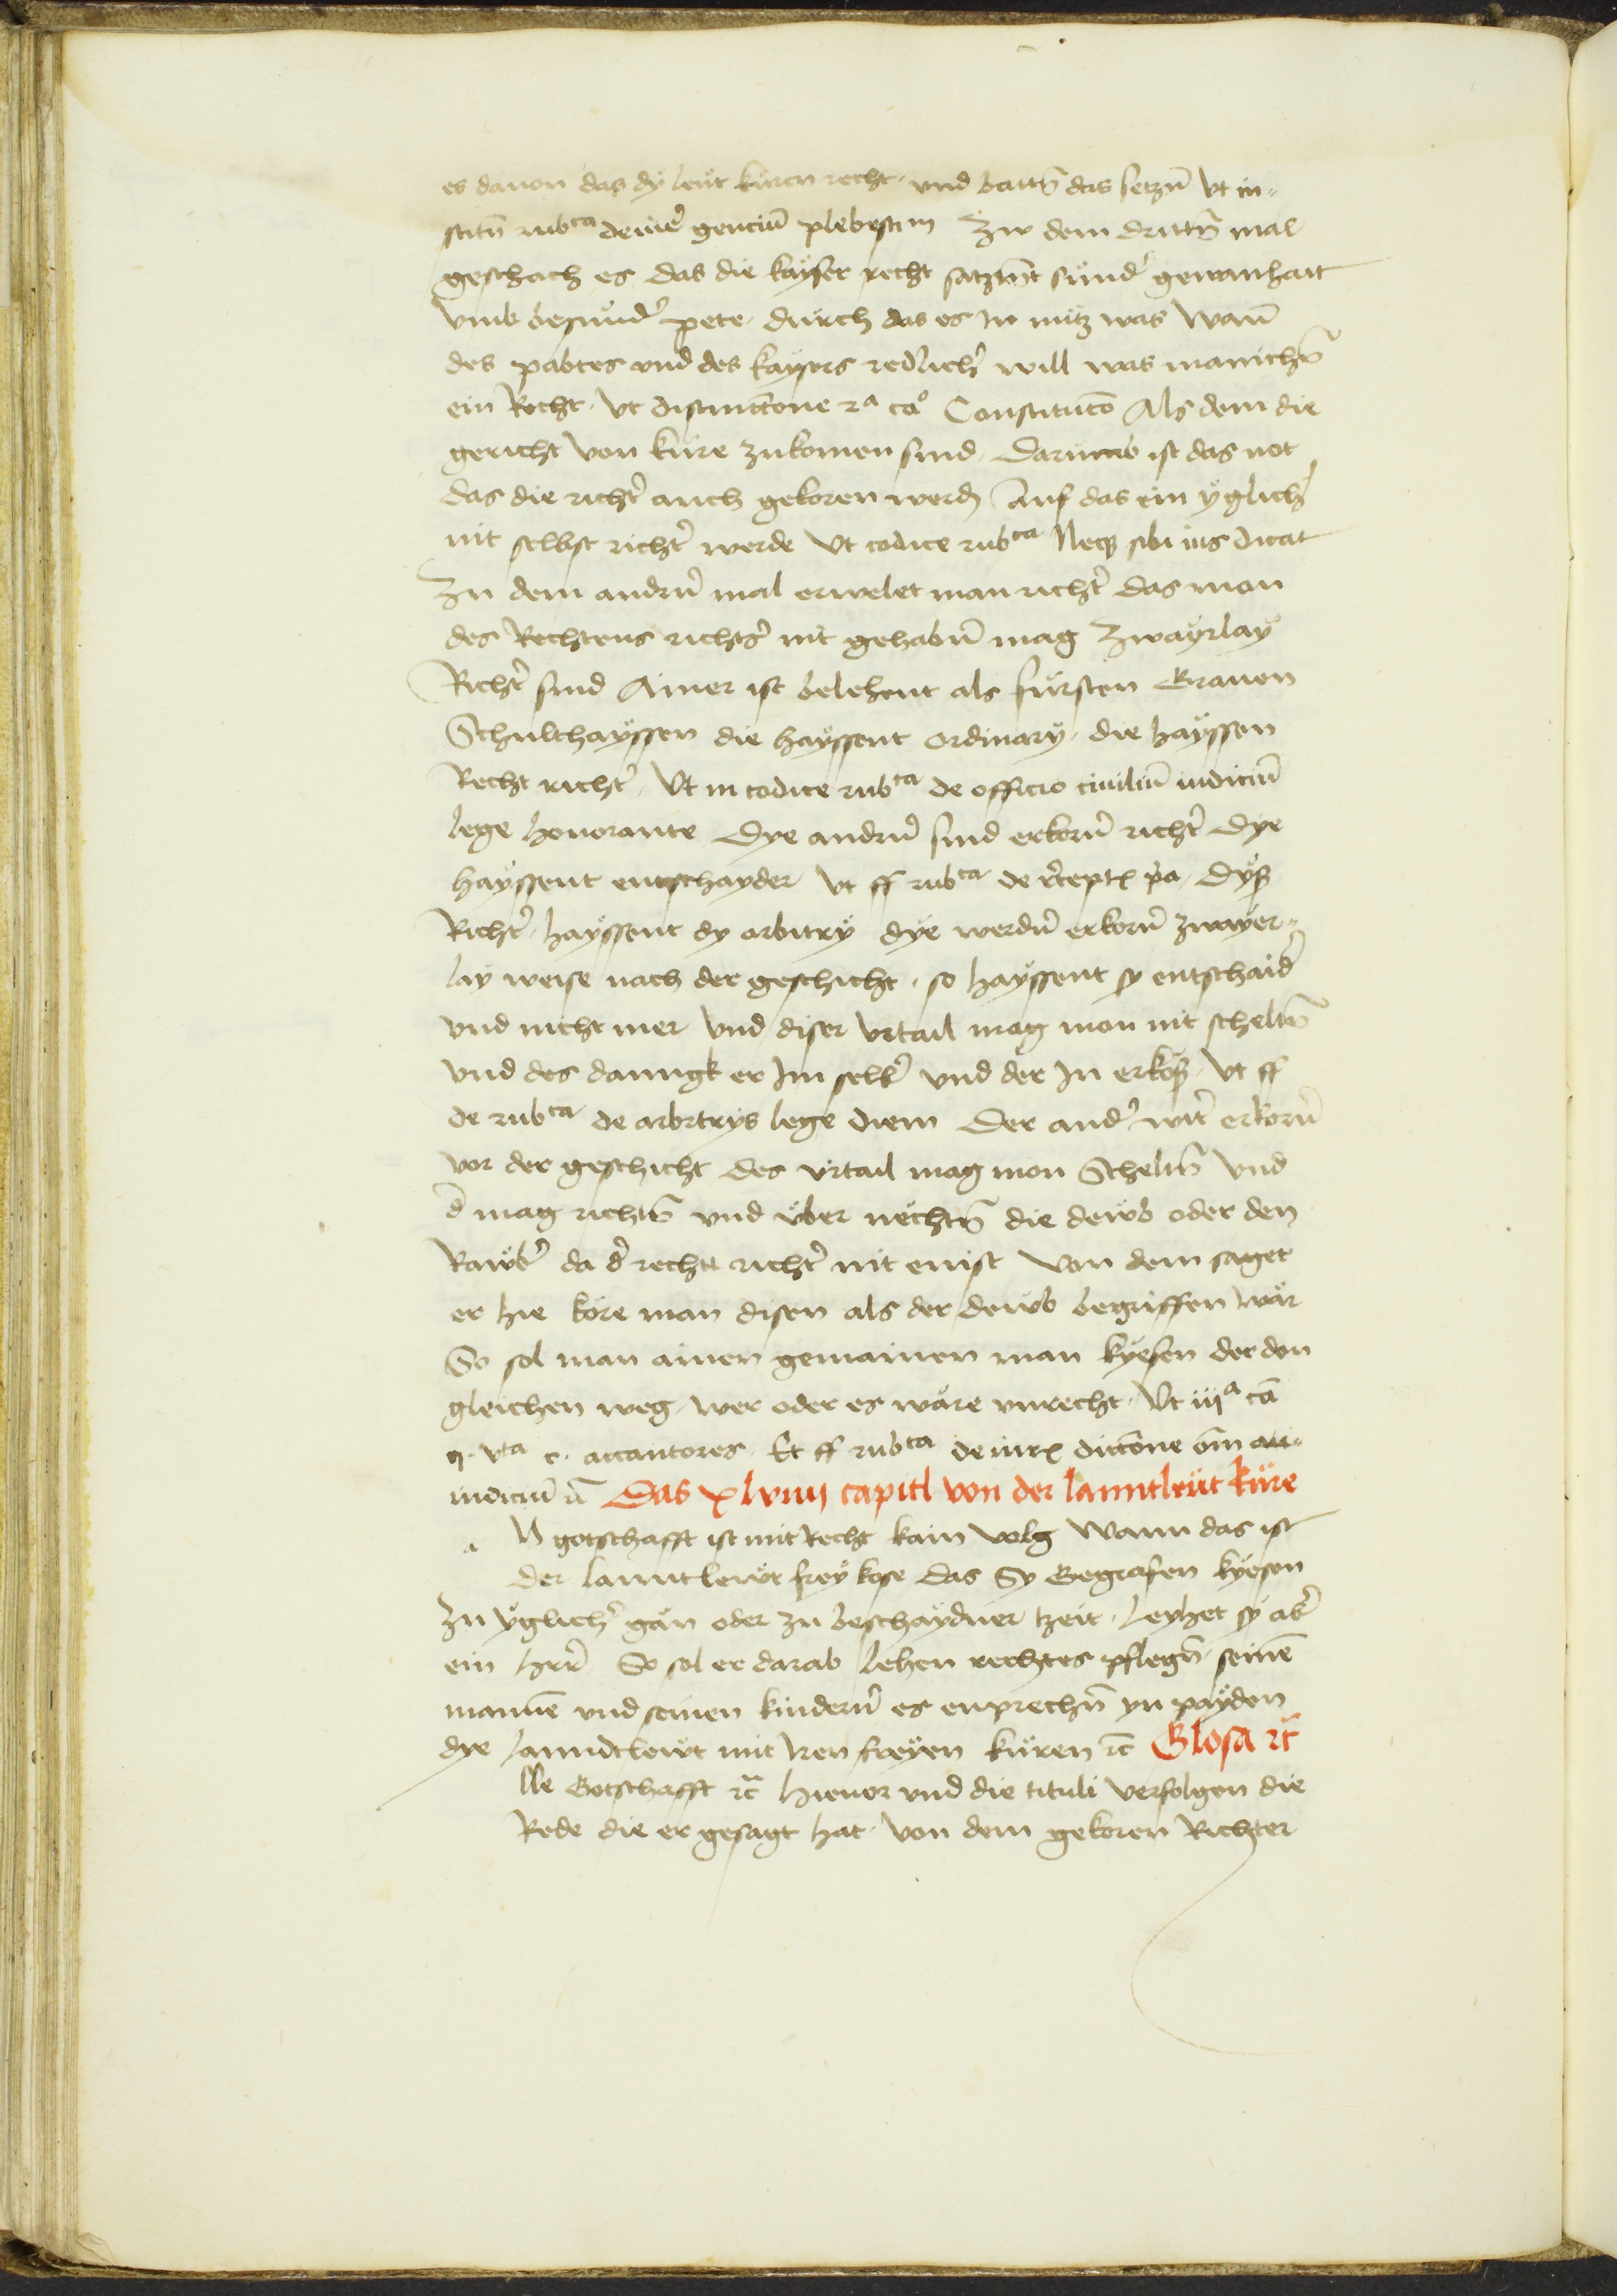 es dauon das dy leut kuren recht · und batt̄n das setzn̄ Vt in=
stitū rubca de iur̄e genciū plebescitu Zw dem dritt̄n mal
geschach es das die kayser recht satztn̄t sund̾ gewanhait
vmb besund̾ pete · durch das es In nutz was Wan̄
des pabtes vnd des kaysers redlich̾ will was manich̄n
ein Recht · Vt distincc̄one 2a cao Constituc̄o Als dem die
gericht von kure zukomen sind · Darumb ist das not
das die richt̾ auch gekoren werdn̄ Auf das ein yglich̾
nit selbst richt̾ werde Vt codice rubca Neq̄ sibi ius dicat
Zu dem andrn̄ mal erwelet man richt̾ das man
des Rechtens richt̾s nit gehabn̄ mag Zwayrlay
Richt̾ sind Ainer ist belehent als fursten Grauen
Schulthayssen die hayssent ordinary · die hayssen
Recht richt̾ · Vt in codice rubca de officio ciuiliū iudiciū
lege honorante Dye andrn̄ sind erkorn̄ richt̾ Dye
hayssent entschayder Vt ff rubca de r̄ceptꝭ p̄a · Dyß
Richt̾ · hayssent dy arbitry dye werdn̄ erkorn̄ zwayer=
lay weise nach der geschicht · so hayssent sy entschaid̾
vnd nicht mer Vnd diser vrtail mag man nit schelt̄n
vnd des danngk er Im selb̾ vnd der In erkoß · Vt ff
de rubca de arbitrys lege diem Der and̾ wir̾t erkorn̄
vor der geschicht des vrtail mag man Schelt̄n Vnd
d̾ mag richt̄n vnd vber nächt̄n die dewb oder den
Rawb̾ da d̾ recht richt̾ nit enist Von dem saget
er hie köre man disen als der dewb begriffen wär
So sol man ainen gemainen man kyesen der den
gleichen weg · wer oder es wäre vnrecht · Vt iija cā
q · vta c · accatores · Et ff rubca de iurꝭ dicc̄one om̄
iudiciū n̄ Das xlviiij capitl von der lanntleut kure
N gotschafft ist mit Recht kain volg Wann das ist
der lanntlewt frey kose das Sy Gegrafen kyesen
zu yglich̾ gän oder zu beschaydner tzeit · Leyhet sy ab̾
ein Hrr̄ So sol er darab lehen rechtes pflegn̄ · seinē
mannē vnd seinen kindern̄ es enprechn̄ yn payden
dye lanndtlewt mit Iren freyen kuren rc̄ Glosa rc̄
lle Gotschafft rc̄ Hieuor vnd die tituli verfolgen die
Rede die er gesagt hat · von dem gekoren Richter